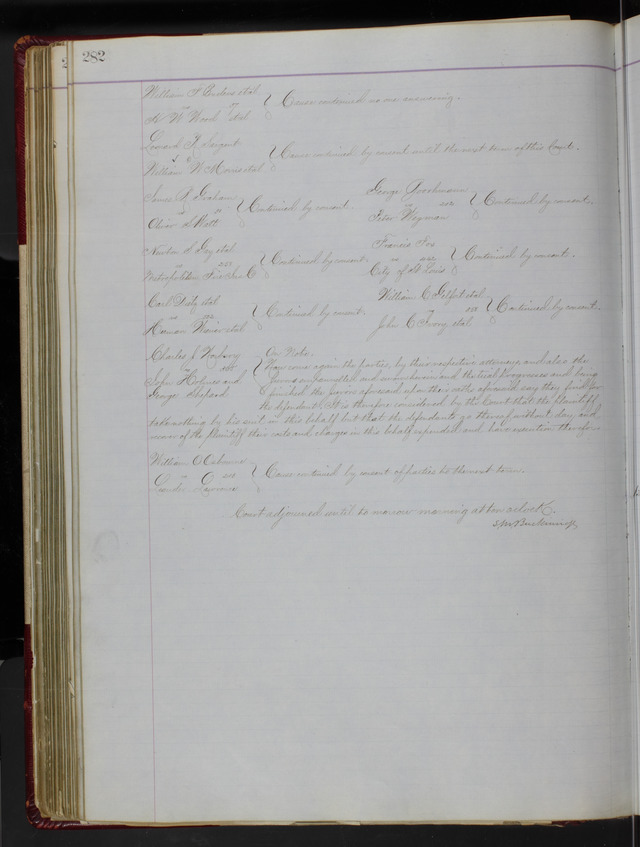 282
William F. et al
vs
W. W. Wood et al
Cause continued no one answering.
Edward F. Sargent
vs
William W. Morris et al
Cause continued by consent until the next term of this Court.
James R. Graham
vs
Oliver D. Platt
Continued by consent.
George
vs
Peter Weyman
Continued by consent.
Newton S. Gay et al
vs
Metropolitan Fire Ins. Co
Continued by consent.
Francis Fox
vs
City of St Louis
Continued by consent.
Carl Daily et al
vs
Herman et al
Continued by consent.
William C. et al
vs
John C. Ivory et al
Continued by consent.
Charles J.
vs
John Holmes and
George Shepard
On Note.
Now come again the parties, by their respective attorneys and also the
jurors empannelled and sworn herein and the trial progresses and being
finished the jurors aforesaid upon their oaths aforesaid say they find for
the defendants. It is therefore considered by the Court that the Plaintiff
take nothing by his suit in this behalf but that the defendants go thereof without day and
recover of the Plaintiff their costs and charges in this behalf expended and have execution therefor.
William O
vs
Leander
Cause continued by consent of parties to the next term.
Court adjourned until to morrow morning at ten o clock.